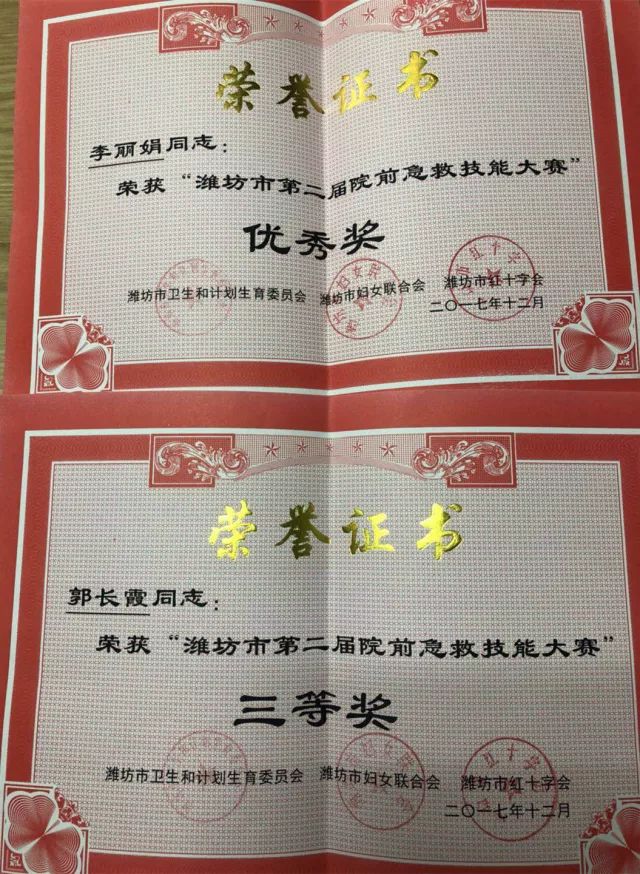 荣誉证书
李丽娟同志：
荣获“潍坊市第二届院前急救技能大赛”
优秀奖
潍坊市卫生和计划生育委员会 潍坊市妇女联合会 潍坊市红十字会
二〇一七年十二月
荣誉证书
郭长霞同志：
荣获“潍坊市第二届院前急救技能大赛”
三等奖
潍坊市卫生和计划生育委员会 潍坊市妇女联合会 潍坊市红十字会
二〇一七年十二月